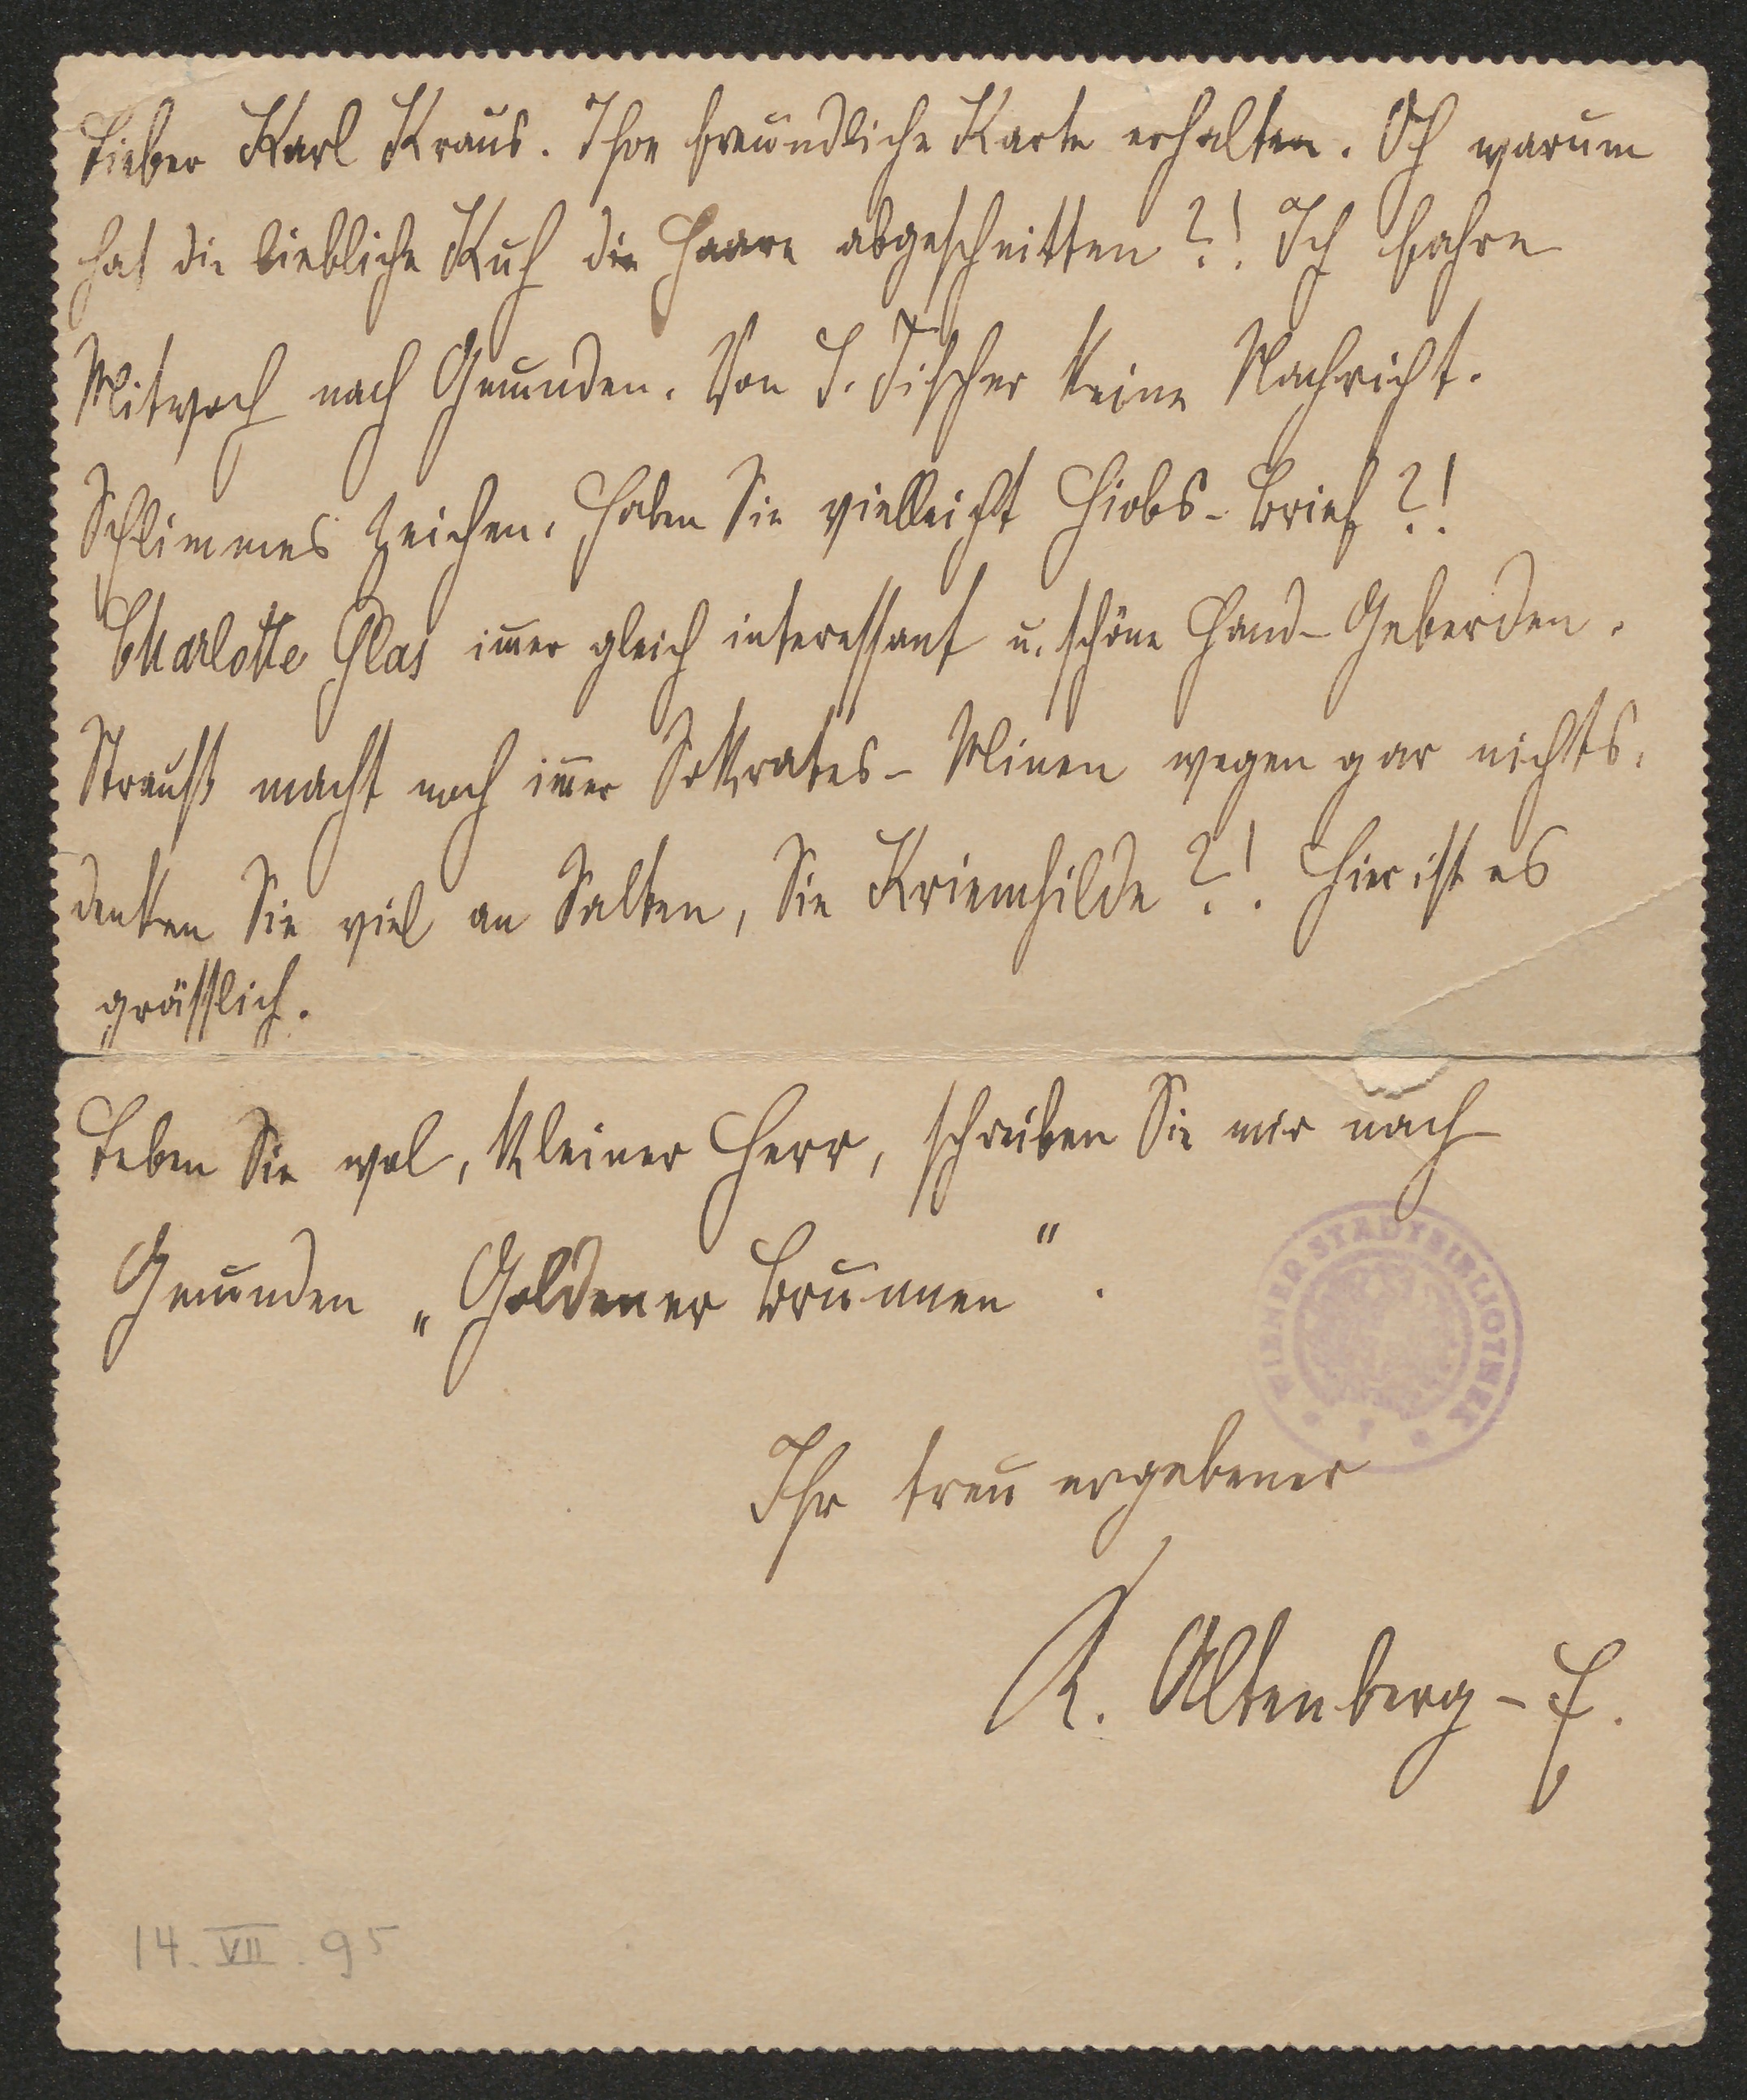 Lieber Karl Kraus. Ihre freundliche Karte erhalten. Oh warum
hat die liebliche Kuh die Haare abgeschnitten?! Ich fahre
Mitwoch nach Gmunden. Von S. Fischer keine Nachricht.
Schlimmes Zeichen. Haben Sie vielleicht Hiobs-Brief?!
Charlotte Glas im̅er gleich interessant u. schöne Hand-Geberden.
Strauß macht noch im̅er Sokrates-Minen wegen gar nichts.
denken Sie viel an Salten, Sie Kriemhilde?! Hier ist es
grässlich.
Leben Sie wol, kleiner Herr, schreiben Sie mir nach
Gmunden „Goldener Brunnen“.
Ihr treu ergebener
R. Altenberg-E.
14. VII. 95
WIENER STADTBIBLIOTHEK